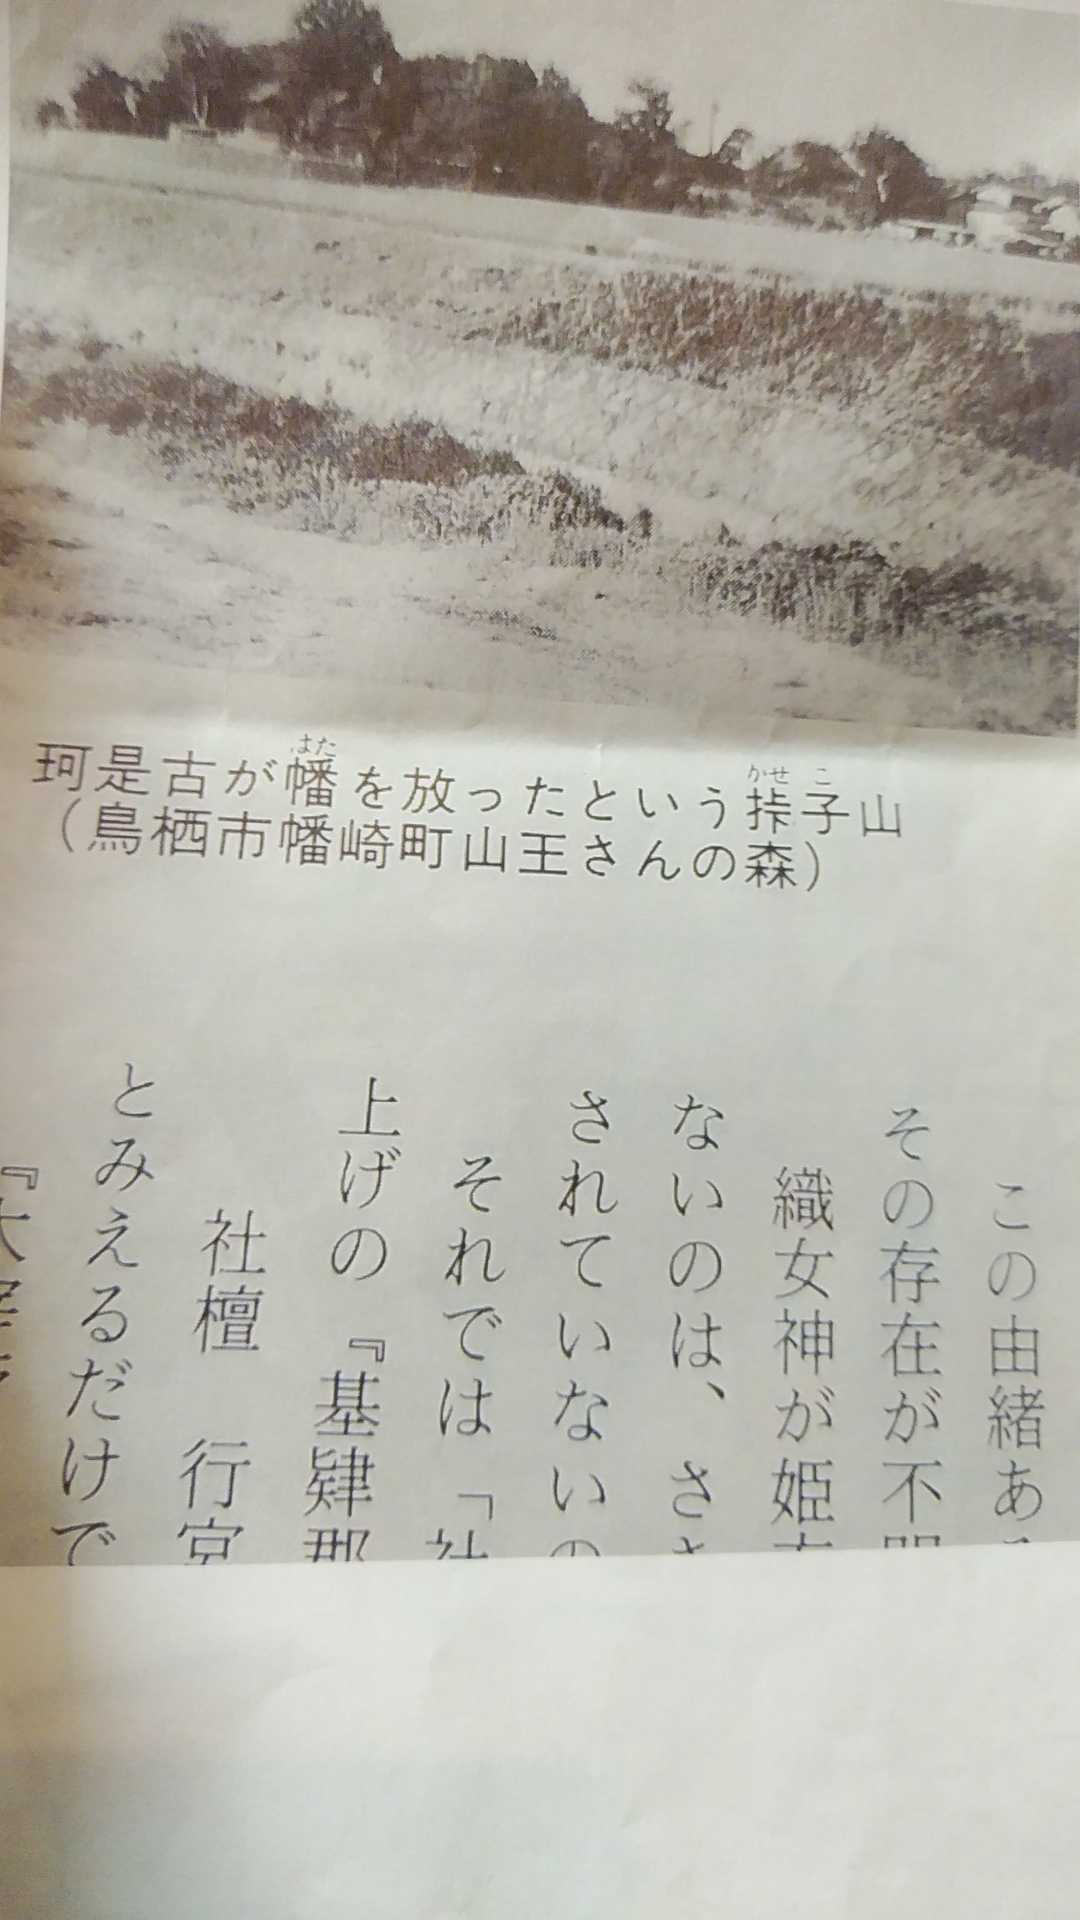 はた かせ こ
珂是古が幡を放ったという挊子山
（鳥栖市幡崎町山王さんの森）
この由緒あ
その存在が不
織女神が姫
ないのは、さ
されていないの
それでは「
上げの『基肄郡
社檀　行宮
とみえるだけで
『大